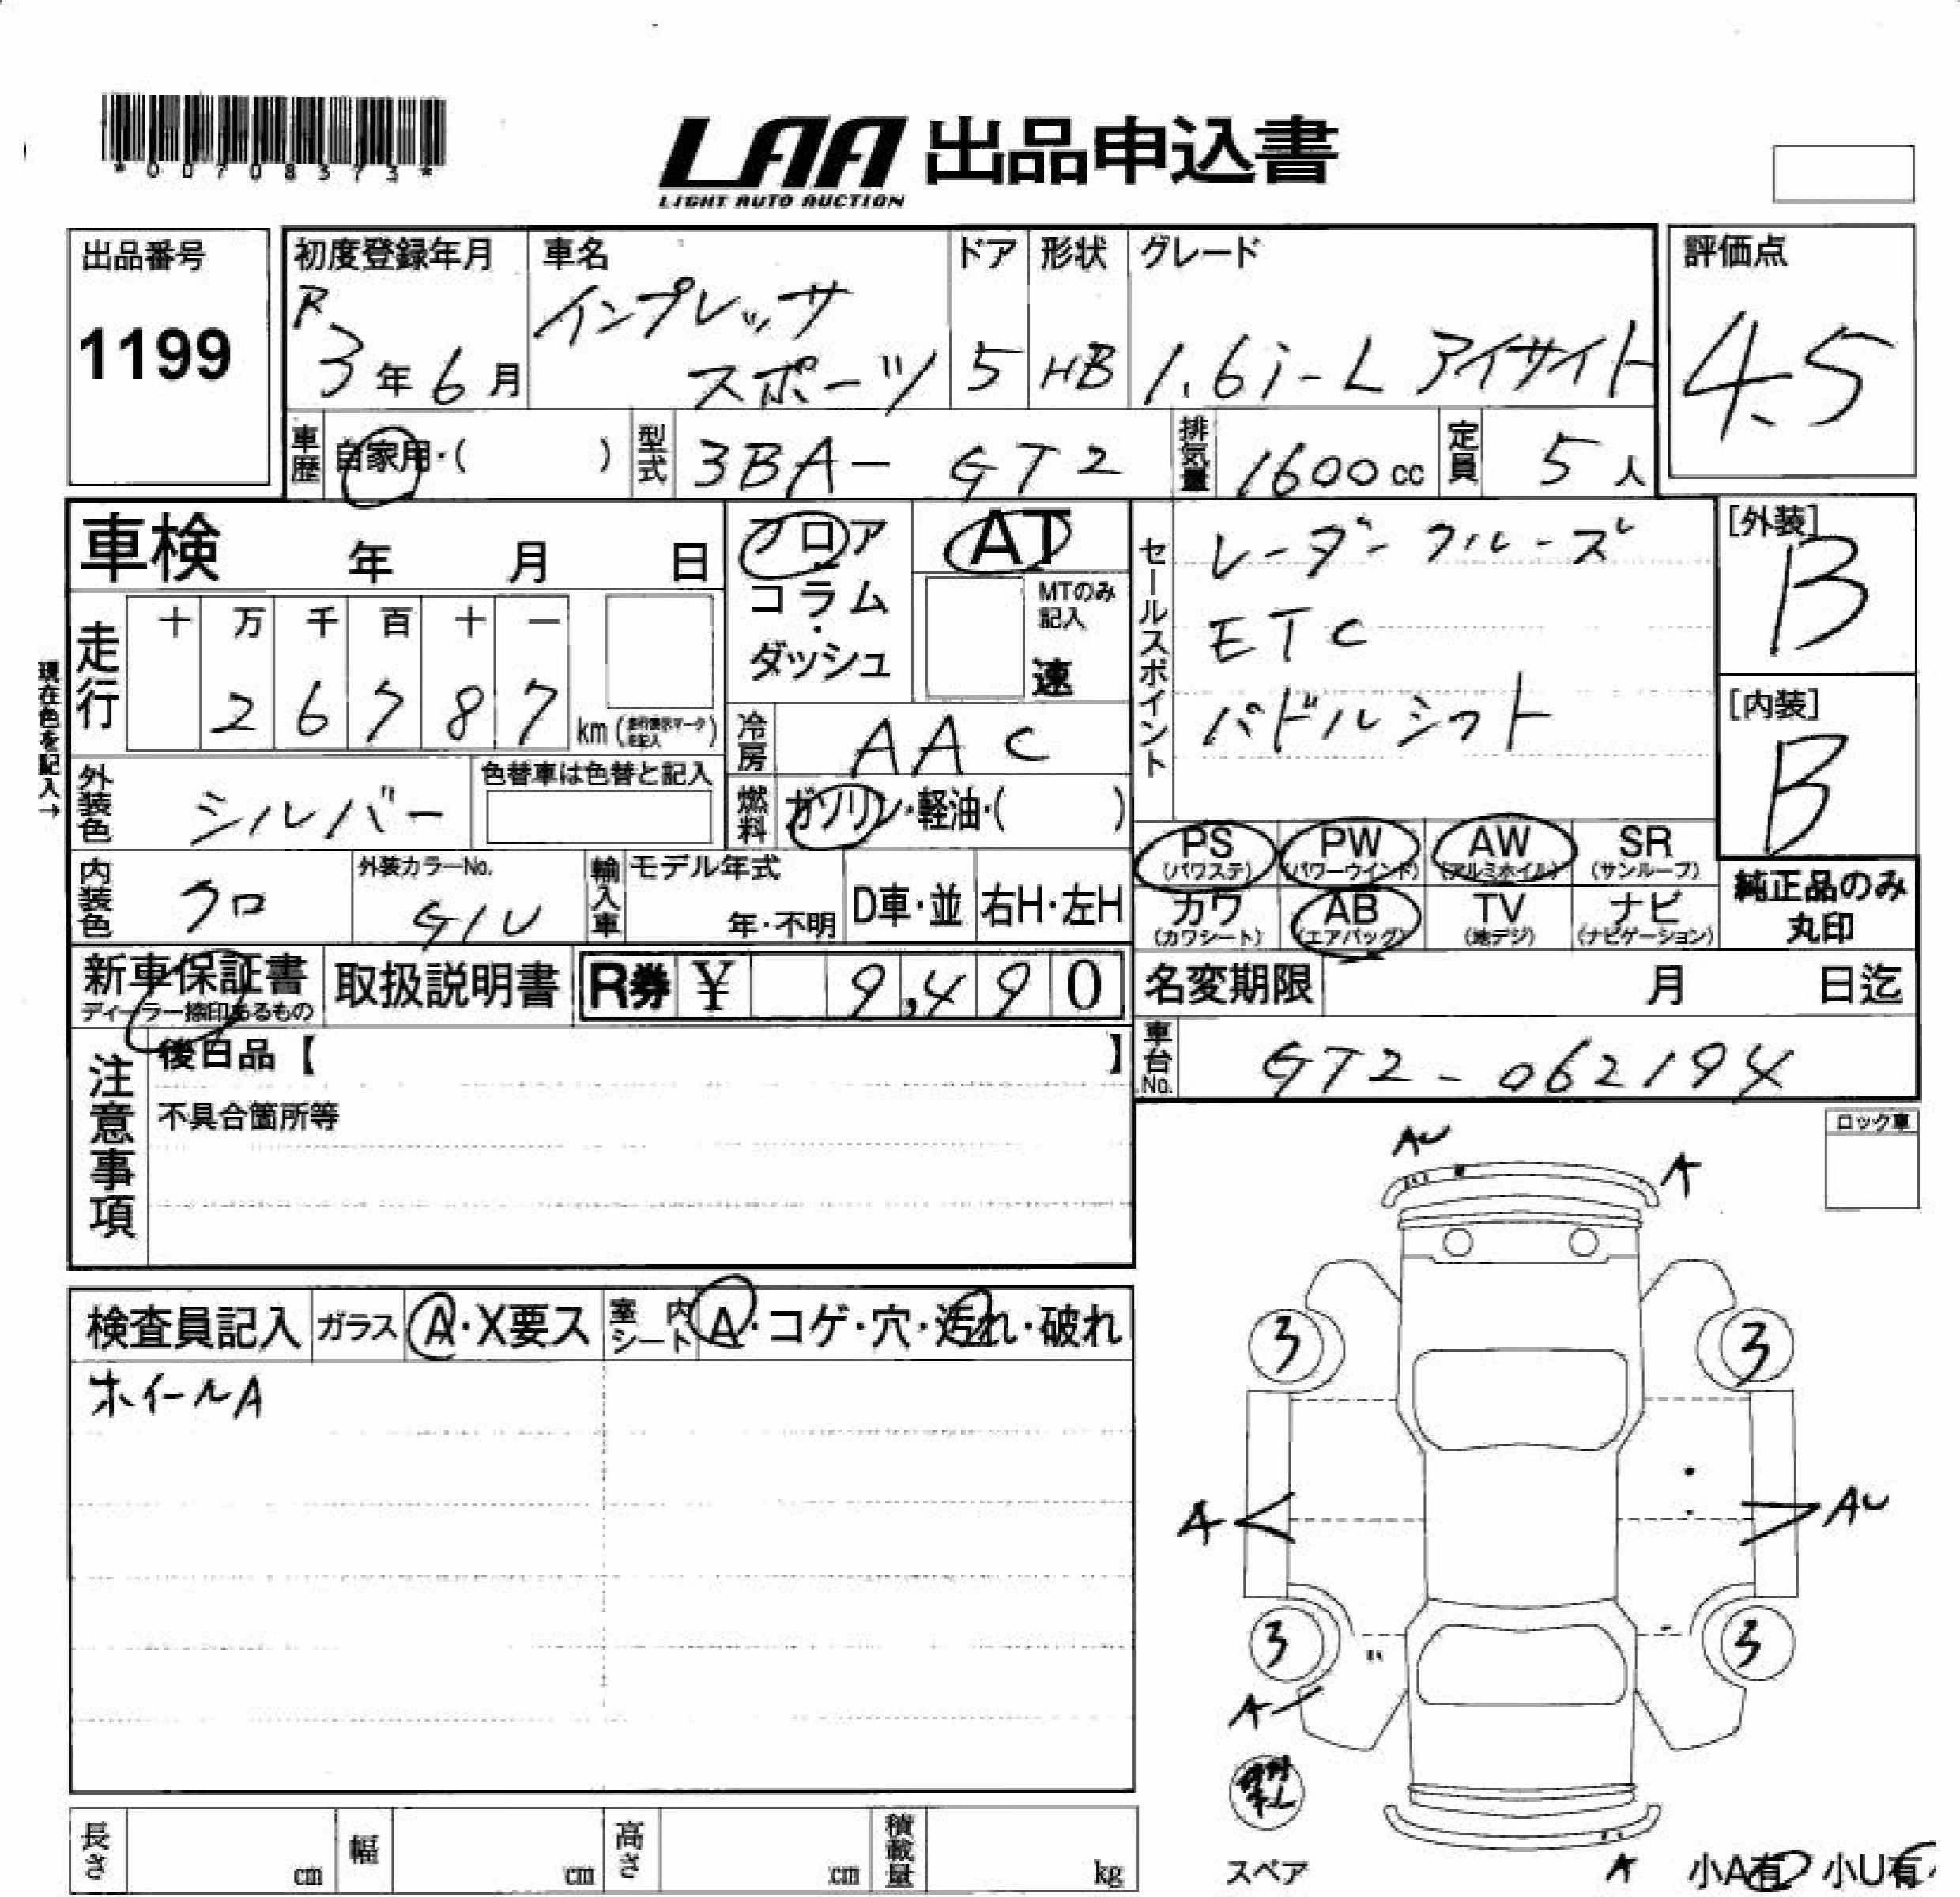 *00708373*
LAA 出品申込書
LIGHT AUTO AUCTION
出品番号
1199
初度登録年月
R
3年6月
車名
インプレッサ
スポーツ
ドア
5
形状
HB
グレード
1.6i-L アイサイト
評価点
4.5
車歴 自家用・( )
型式 3BA- GT2
排気量 1600cc
定員 5人
車検 年 月 日
フロア
コラム
・
ダッシュ
AT
MTのみ
記入
速
セールスポイント
レーダークルーズ
ETC
パドルシフト
[外装]
B
[内装]
B
現在色を記入→
走行
十 万 千 百 十 一
2 6 7 8 7 km
冷房 AAC
外装色 シルバー
色替車は色替と記入
燃料 ガソリン・軽油・( )
PS PW AW SR
(パワステ) (パワーウインド) (アルミホイル) (サンルーフ)
カワ AB TV ナビ
(カワシート) (エアバッグ) (地デジ) (ナビゲーション)
純正品のみ
丸印
内装色 クロ
外装カラーNo.
G1U
輸入車
モデル年式
年・不明
D車・並
右H・左H
新車保証書
ディーラー捺印あるもの
取扱説明書
R券 ¥ 9,490
名変期限 月 日迄
車台No. GT2-062194
注意事項
後日品【 】
不具合箇所等
ロック車
AU
A
検査員記入
ガラス A・X要ス
室内シート A・コゲ・穴・汚れ・破れ
ホイールA
3 3
A AU
3 3
A
スペア
A
小A有 小U有
長さ cm
幅 cm
高さ cm
積載量 kg